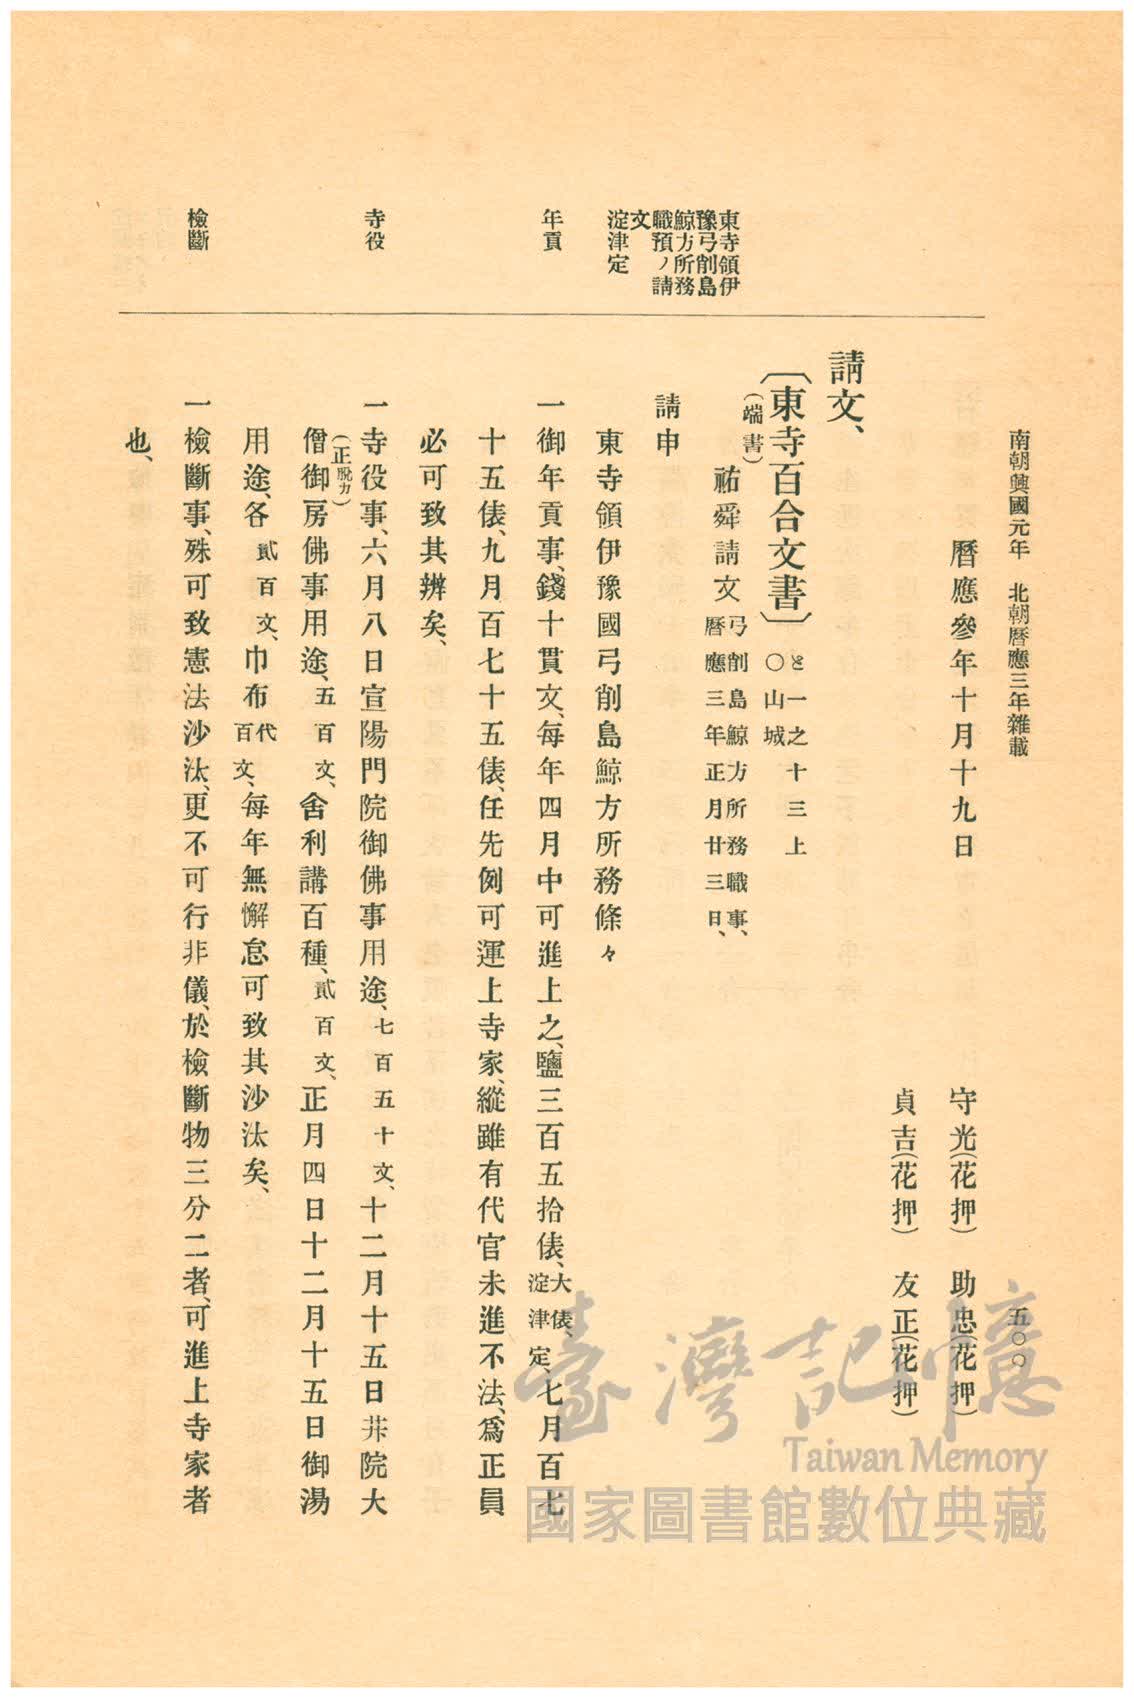 南朝興國元年　北朝曆應三年雜載
五〇〇
曆應參年十月十九日
守光(花押)　助忠(花押)
貞吉(花押)　友正(花押)
請文、
〔東寺百合文書〕
と一之十三上
〇山城
(端書)
祐舜請文
弓削島鯨方所務職事、
曆應三年正月廿三日、
請申
東寺領伊豫國弓削島鯨方所務條々
一御年貢事、錢十貫文、每年四月中可進上之、鹽三百五拾俵、大俵、淀津定、七月百七
十五俵、九月百七十五俵、任先例可運上寺家、縱雖有代官未進不法、爲正員
必可致其辨矣、
一寺役事、六月八日宣陽門院御佛事用途、七百五十文、十二月十五日幷院大
(正脫カ)
僧御房佛事用途、五百文、舍利講百種、貳百文、正月四日十二月十五日御湯
用途、各貳百文、巾布代百文、每年無懈怠可致其沙汰矣、
一檢斷事、殊可致憲法沙汰、更不可行非儀、於檢斷物三分二者、可進上寺家者
也、
東寺領伊
豫弓削島
鯨方所務
職預ノ請
文
淀津定
年貢
寺役
檢斷
臺灣記憶
Taiwan Memory
國家圖書館數位典藏